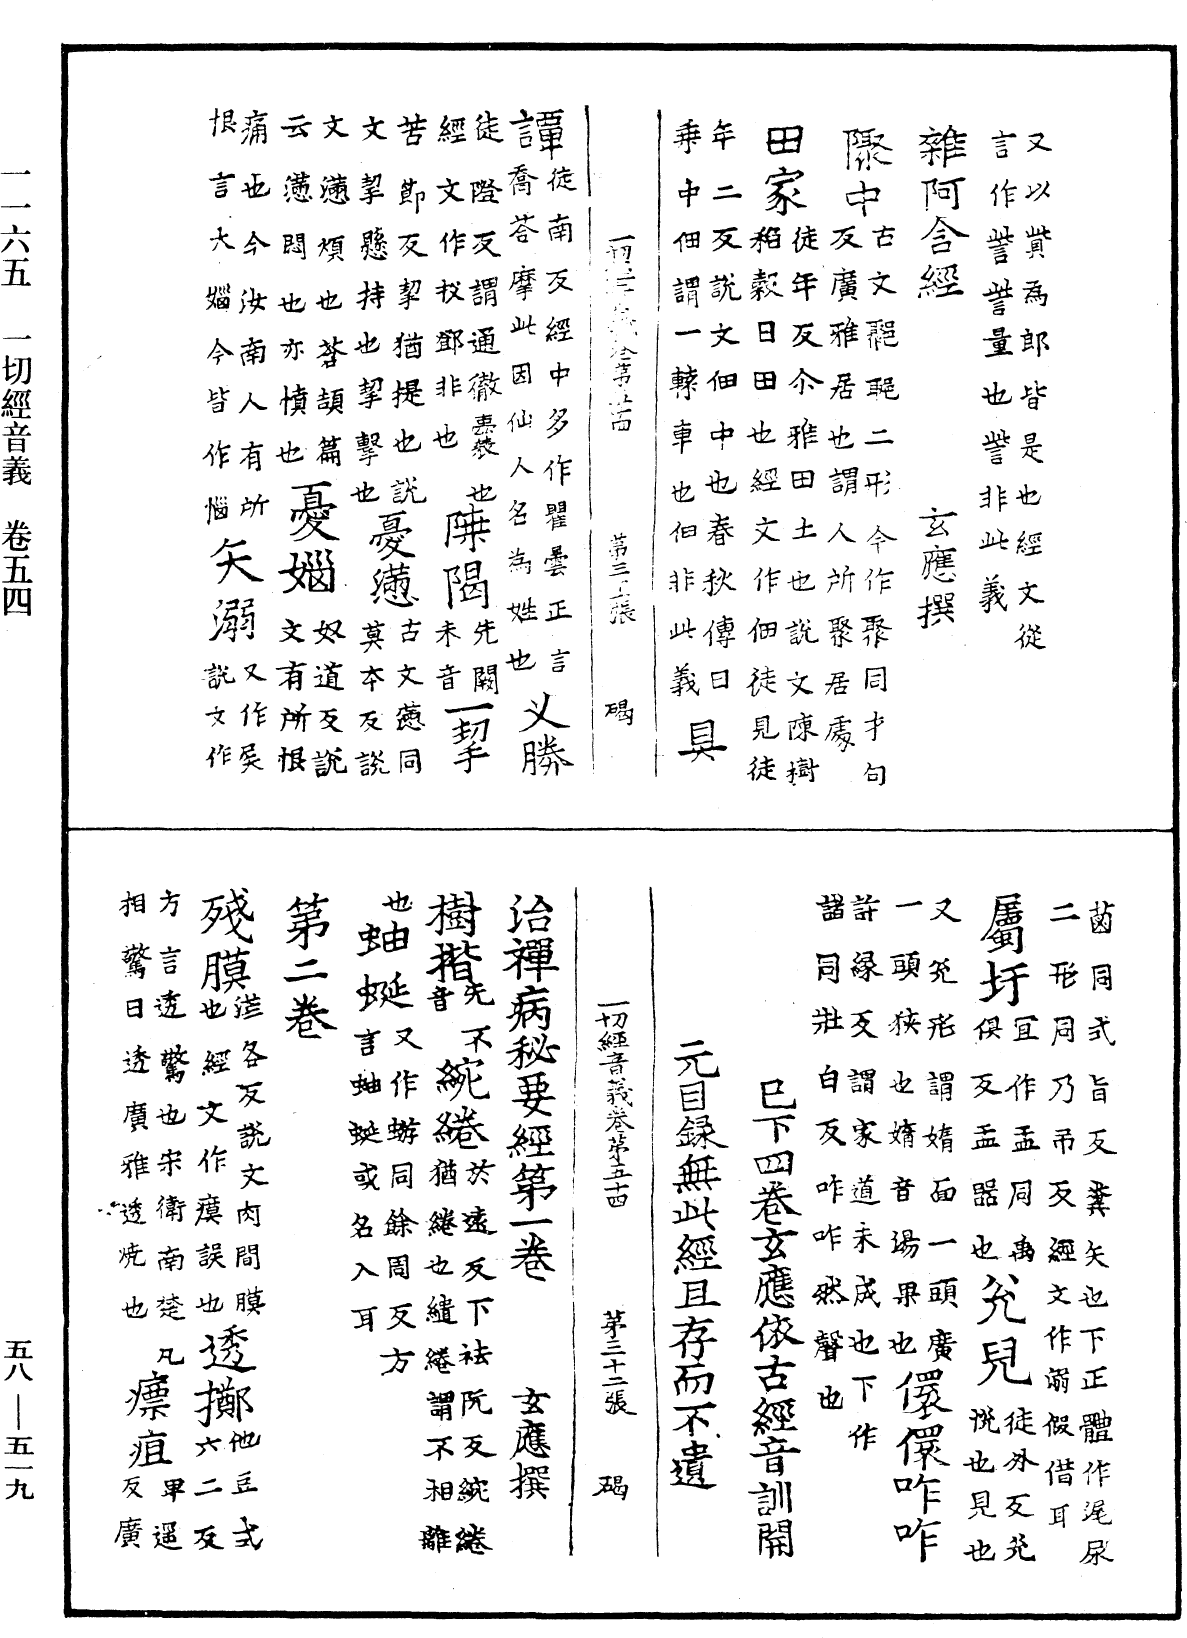 一一六五 一切經音義 卷五四
五八—五一九
又以貲為郎皆是也經文從
言作訾訾量也訾非此義
雜阿含經 玄應撰
隊中古文𨽁耴二形今作聚同才句
反廣雅居也謂人所聚居處
田家徒年反尒雅田土也說文陳樹
稻穀曰田也經文作佃徒見徒
年二反說文佃中也春秋傳曰
乘中佃謂一轅車也佃非此義 具
一切經音義卷第五十四 第三十一張 碣
譚徒南反經中多作瞿曇正言
喬荅摩此因仙人名為姓也 义勝
徒隥反謂通徹裏袋也
經文作杸鄧非也 陣闍先闕未音 一挈
苦節反挈猶提也說
文挈懸持也挈擊也 憂懣古文懑同莫本反說
文懣煩也蒼頡篇
云懣悶也亦憤也 憂㛴奴道反說文有所恨
痛也今汝南人有所
恨言大㛴今皆作惱 矢溺又作㞙說文作
菌同式旨反糞矢也下正體作𡲰尿
二形同乃吊反經文作溺假借耳
屬圩宜作盂同禹俱反盂器也 兊兒徒外反兊悅也見也
又兊形謂媠面一頭廣
一頭狹也媠音湯果也 儇儇咋咋
許緣反謂家道未成也下作
諎同壯白反咋咋然聲也
巳下四卷玄應依古經音訓開
元目錄無此經且存而不遺
一切經音義卷第五十四 第三十二張 碣
治禪病秘要經第一卷 玄應撰
樹揩先不音 綩綣於遠反下祛阮反綩綣
猶綣也繾綣謂不相離
也 蚰蜒又作蝣同餘周反方
言蚰蜒或名入耳
第二卷
殘膜茫各反說文肉間膜
也經文作瘼誤也 透擲他豆式六二反
方言透驚也宋衛南楚凡
相驚曰透廣雅透嬈也 瘭疽卑遥反廣